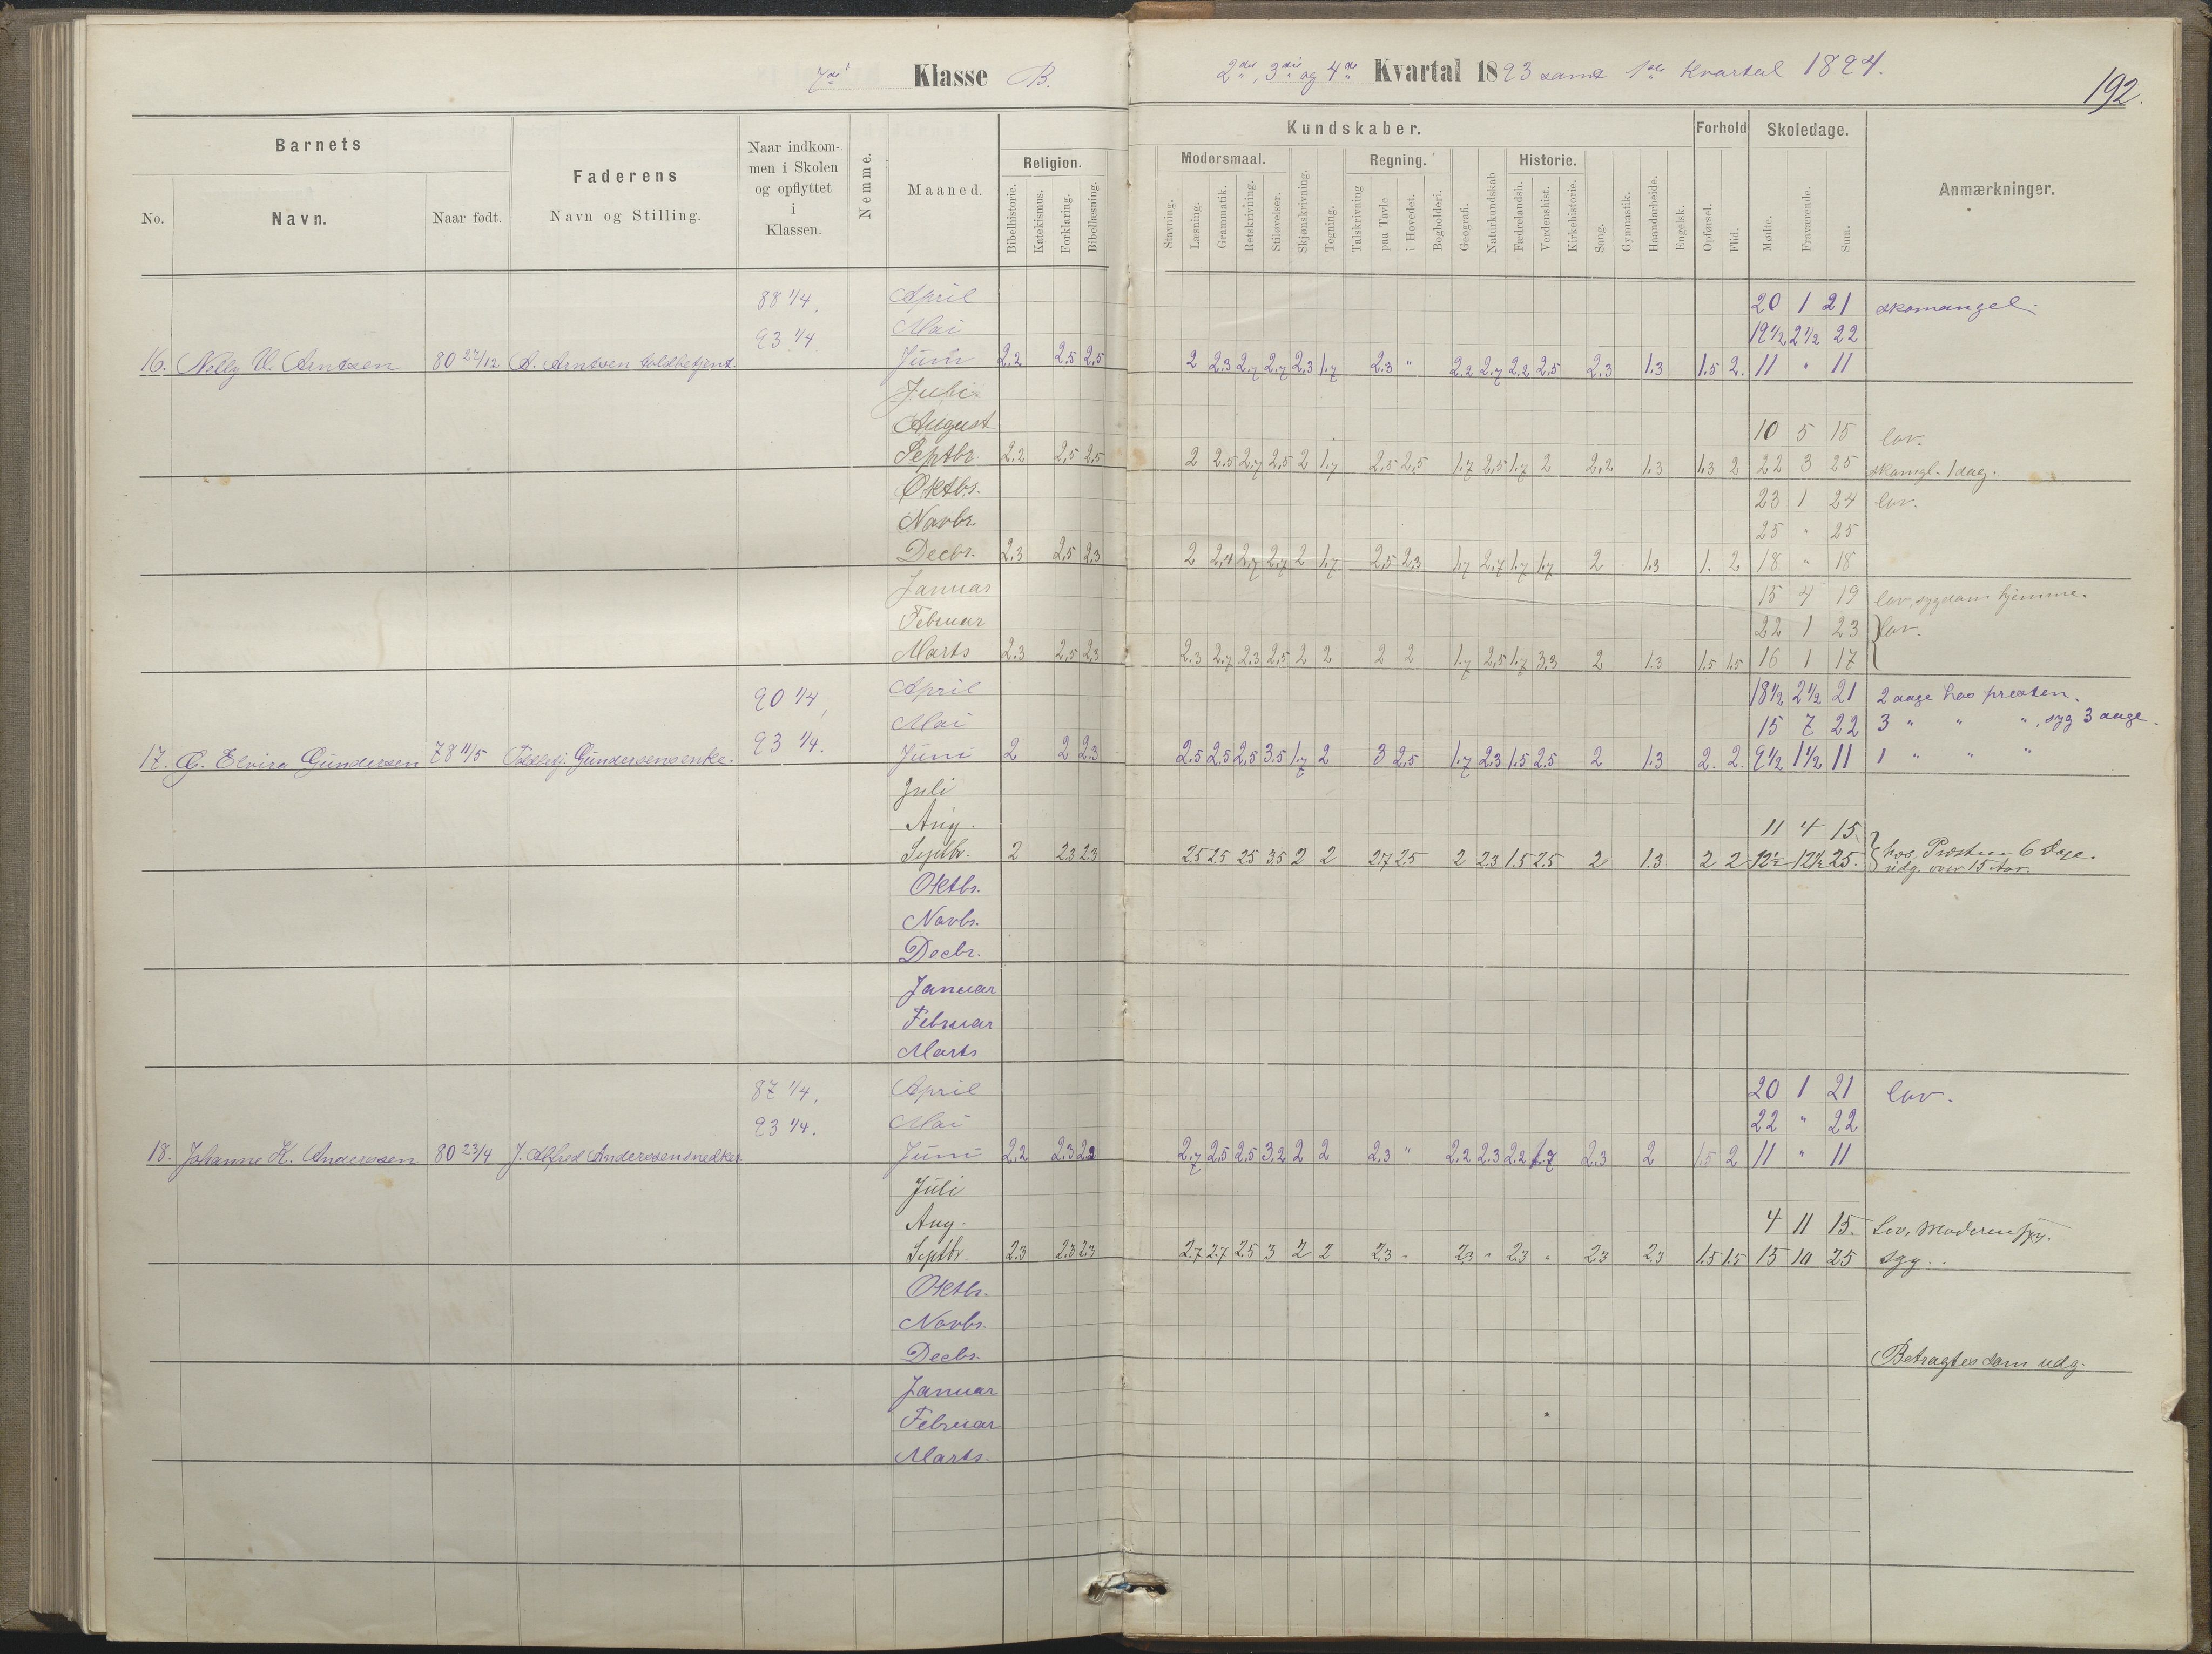 7de Klasse B.
2det, 3die og 4de Kvartal 1893 samt 1ste Kvartal 1894.
192.
Barnets
No.
Navn.
Naar født.
Faderens
Navn og Stilling.
Naar indkom-
men i Skolen
og opflyttet
i
Klassen.
Nemme.
Maaned.
Kundskaber.
Religion.
Bibelhistorie.
Katekismus.
Forklaring.
Bibellæsning.
Modersmaal.
Stavning.
Læsning.
Grammatik.
Retskrivning.
Stiløvelser.
Skjønskrivning.
Tegning.
Regning.
Talskrivning
paa Tavle
i Hovedet.
Bogholderi.
Geografi.
Naturkundskab
Historie.
Fædrelandsh.
Verdenshist.
Kirkehistorie.
Sang.
Gymnastik.
Haandarbeide.
Engelsk.
Forhold
Opførsel.
Flid.
Skoledage.
Mødte.
Fraværende.
Sum.
Anmærkninger.
88 1/4, April 20 1 21 skomangel.
93 1/4 Mai 19 1/2 2 1/2 22
16. Nelly V. Arntsen 80 27/12 A. Arntsen toldbetjent. Juni 2.2 2.5 2.5 2 2.3 2.7 2.7 2.3 1.7 2.3 " 2.2 2.7 2.2 2.5 2.3 1.3 1.5 2. 11 " 11
Juli
August 10 5 15 lov.
Septbr. 2.2 2.5 2.5 2 2.5 2.7 2.5 2 1.7 2.5 2.5 1.7 2.5 1.7 2 2.2 1.3 1.3 2 22 3 25 skomgl. 1 dag.
Oktbr. 23 1 24 lov.
Novbr. 25 " 25
Decbr. 2.3 2.5 2.3 2 2.4 2.7 2.7 2 1.7 2.5 2.3 1.7 2.7 1.7 1.7 2 1.3 1. 2 18 " 18
Januar 15 4 19 lov, sygdom hjemme.
Februar 22 1 23 lov.
Marts 2.3 2.5 2.3 2.3 2.7 2.3 2.5 2 2 2 2 1.7 2.5 1.7 3.3 2 1.3 1.5 1.5 16 1 17
90 1/4, April 18 1/2 2 1/2 21 2 dage hos presten.
93 1/4. Mai 15 7 22 3 " " ", syg 3 dage.
17. G. Elvira Gundersen 78 11/5 Toldbtj. Gundersens enke. Juni 2 2 2.3 2.5 2.5 2.5 3.5 1.7 2 3 2.5 1.7 2.3 1.5 2.5 2 1.3 2. 2. 9 1/2 1 1/2 11 1 " " "
Juli
Aug. 11 4 15
Septbr. 2 2.3 2.3 2.5 2.5 2.5 3.5 2 2 2.7 2.5 2 2.3 1.5 2.5 2 1.3 2 2 12 1/2 12 1/2 25. hos Presten 6 Dage.
udg. over 15 Aar.
Oktbr.
Novbr.
Decbr.
Januar
Februar
Marts
87 1/4, April 20 1 21 lov.
93 1/4. Mai 22 " 22
18. Johanne K. Anderssen 80 23/4 J. Alfred Anderssen snedker. Juni 2.2 2.3 2.2 2.7 2.5 2.5 3.2 2 2 2.3 " 2.2 2.3 2.2 1.7 2.3 2 1.5 2 11 " 11
Juli
Aug. 4 11 15. Lov, Moderen syg.
Septbr. 2.3 2.3 2.3 2.7 2.7 2.5 3 2 2 2.3 " 2.3 " 2.3 " 2.3 2.3 1.5 1.5 15 10 25 syg.
Oktbr.
Novbr.
Decbr. Betragtes som udg.
Januar
Februar
Marts.